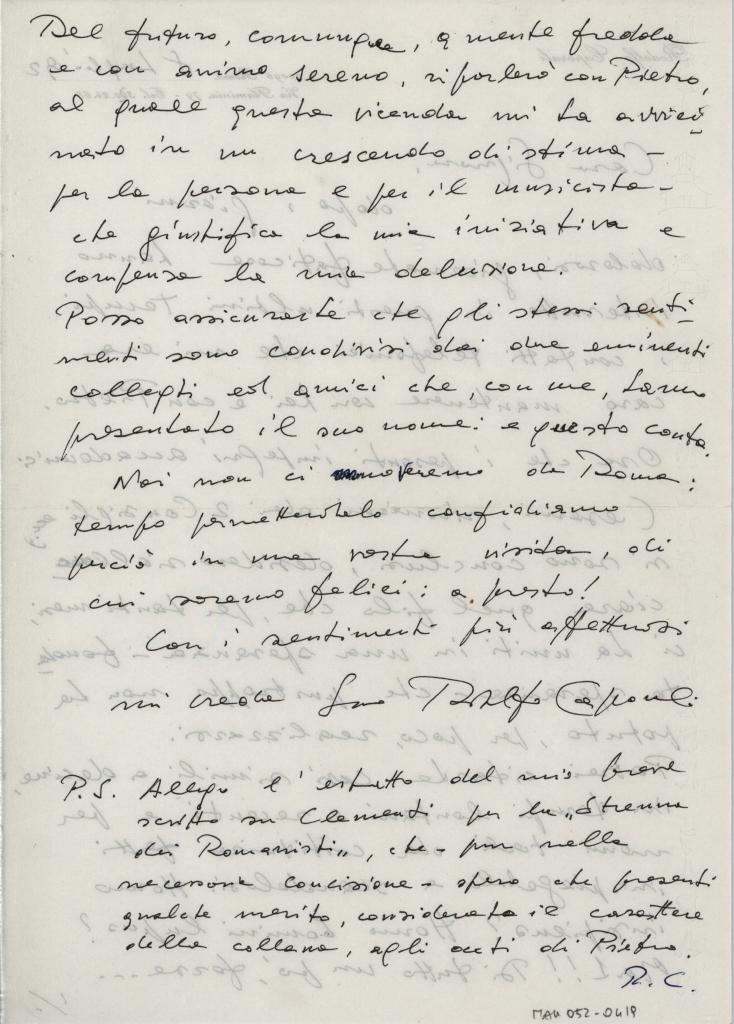 Del futuro, comunque, a mente fredda
e con animo sereno, riparlerò con Pietro,
al quale questa vicenda mi ha avvici
nato in un crescendo di stima -
per la persona e per il musicista -
che giustifica la mia iniziativa e
compensa la mia delusione.
Posso assicurarle che gli stessi senti-
menti sono condivisi dai due eminenti
colleghi ed amici che, con me, hanno
presentato il suo nome: e questo conta.
Noi non ci moveremo da Roma:
tempo permettendolo confidiamo
perciò in una vostra visita, di
cui saremo felici: a presto!
Con i sentimenti più affettuosi
mi creda Suo Rodolfo Caporali
P.S. Allego l'estratto del mio breve
scritto su Clementi per la „Strenna
dei Romanisti", che - pur nella
necessaria concisione - spero che presenti
qualche merito, considerato il carattere
della collana, agli occhi di Pietro.
R. C.
MAU 052-0418